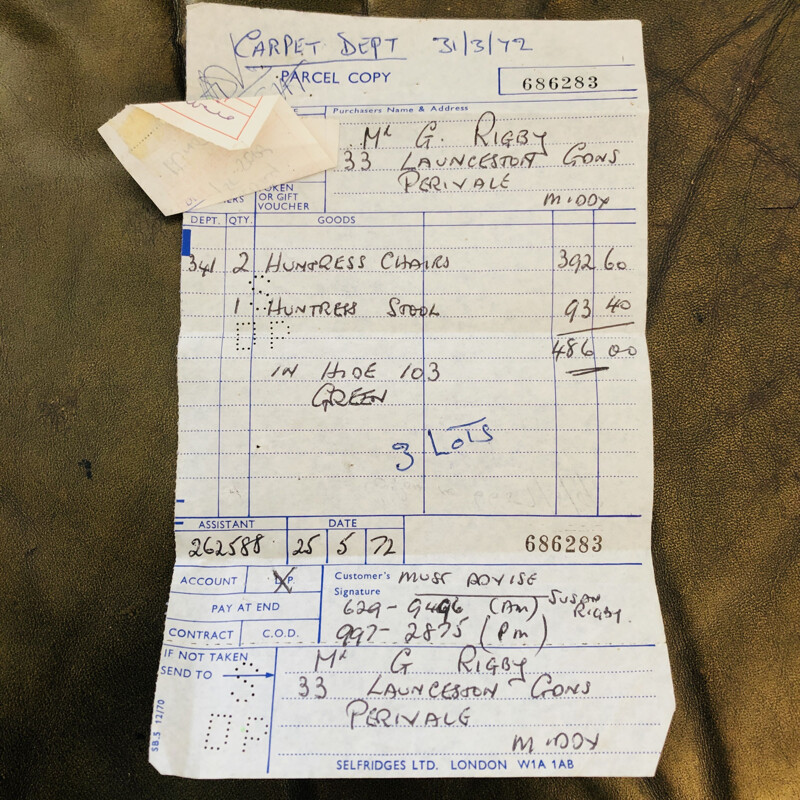 CARPET DEPT 31/3/72
PARCEL COPY
686283
Purchasers Name & Address
Mr G. RIGBY
33 LAUNCESTON GDNS
PERIVALE
MIDDX
OR GIFT
VOUCHER
DEPT. QTY. GOODS
341 2 HUNTRESS CHAIRS 392 60
1 HUNTRESS STOOL 93 40
486 00
IN HIDE 103
GREEN
3 LOTS
ASSISTANT DATE
262588 25 5 72 686283
ACCOUNT D.P. Customer's Signature MUST ADVISE
PAY AT END 629-9496 (AM) SUSAN RIGBY.
CONTRACT C.O.D. 997-2875 (PM)
IF NOT TAKEN
SEND TO
Mr G RIGBY
33 LAUNCESTON GDNS
PERIVALE
MIDDX
SB-5 12/70
SELFRIDGES LTD. LONDON W1A 1AB